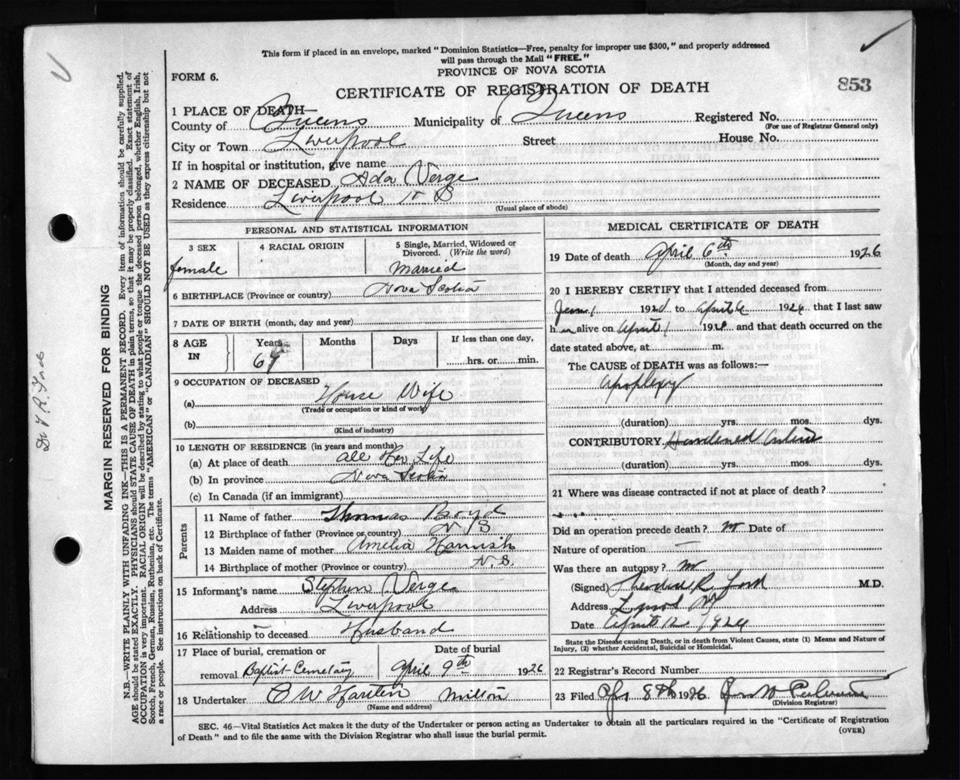 This form if placed in an envelope, marked "Dominion Statistics—Free, penalty for improper use $300," and properly addressed
will pass through the Mail "FREE."
FORM 6.
PROVINCE OF NOVA SCOTIA
CERTIFICATE OF REGISTRATION OF DEATH
853
1 PLACE OF DEATH
County of Queens Municipality of Queens Registered No.
(For use of Registrar General only)
City or Town Liverpool Street House No.
If in hospital or institution, give name
2 NAME OF DECEASED Ada Verge
Residence Liverpool N S
(Usual place of abode)
PERSONAL AND STATISTICAL INFORMATION
3 SEX 4 RACIAL ORIGIN 5 Single, Married, Widowed or
Divorced. (Write the word)
female Married
6 BIRTHPLACE (Province or country) Nova Scotia
7 DATE OF BIRTH (month, day and year)
8 AGE IN Years Months Days If less than one day,
hrs. or min.
9 OCCUPATION OF DECEASED
(a) House Wife
(Trade or occupation or kind of work)
(b)
(Kind of industry)
10 LENGTH OF RESIDENCE (in years and months)
(a) At place of death All Her Life
(b) In province Nova Scotia
(c) In Canada (if an immigrant)
Parents
11 Name of father Thomas Boyd
12 Birthplace of father (Province or country) N S
13 Maiden name of mother Amelia Harnish
14 Birthplace of mother (Province or country) N.S.
15 Informant's name Stephen Verge
Address Liverpool
16 Relationship to deceased Husband
17 Place of burial, cremation or Date of burial
removal Baptist Cemetary April 9th 1926
18 Undertaker Milton
(Name and address)
MEDICAL CERTIFICATE OF DEATH
19 Date of death April 6th 1926
(Month, day and year)
20 I HEREBY CERTIFY that I attended deceased from
to April 6 1926 that I last saw
alive on April and that death occurred on the
date stated above, at m.
The CAUSE of DEATH was as follows:—
apoplexy
(duration) yrs. mos. dys.
CONTRIBUTORY. Hardened
(duration) yrs. mos. dys.
21 Where was disease contracted if not at place of death?
Did an operation precede death? Date of
Nature of operation
Was there an autopsy?
(Signed) Theodore R Ford M.D.
Address
Date April
State the Disease causing Death, or in death from Violent Causes, state (1) Means and Nature of
Injury, (2) whether Accidental, Suicidal or Homicidal.
22 Registrar's Record Number
23 Filed 8th 1926
(Division Registrar)
SEC. 46—Vital Statistics Act makes it the duty of the Undertaker or person acting as Undertaker to obtain all the particulars required in the "Certificate of Registration
of Death" and to file the same with the Division Registrar who shall issue the burial permit.
(OVER)
MARGIN RESERVED FOR BINDING
N.B.—WRITE PLAINLY WITH UNFADING INK—THIS IS A PERMANENT RECORD. Every item of information should be carefully supplied.
AGE should be stated EXACTLY. PHYSICIANS should STATE CAUSE OF DEATH in plain terms, so that it may be properly classified. Exact statement of
OCCUPATION is very important. RACIAL ORIGIN will be described by stating to what people or tongue the deceased person belonged, whether English, Irish,
Scotch, French, German, Russian, Ruthenian, etc. The terms "AMERICAN" or "CANADIAN" SHOULD NOT BE USED as they express citizenship but not
a race or people. See instructions on back of Certificate.